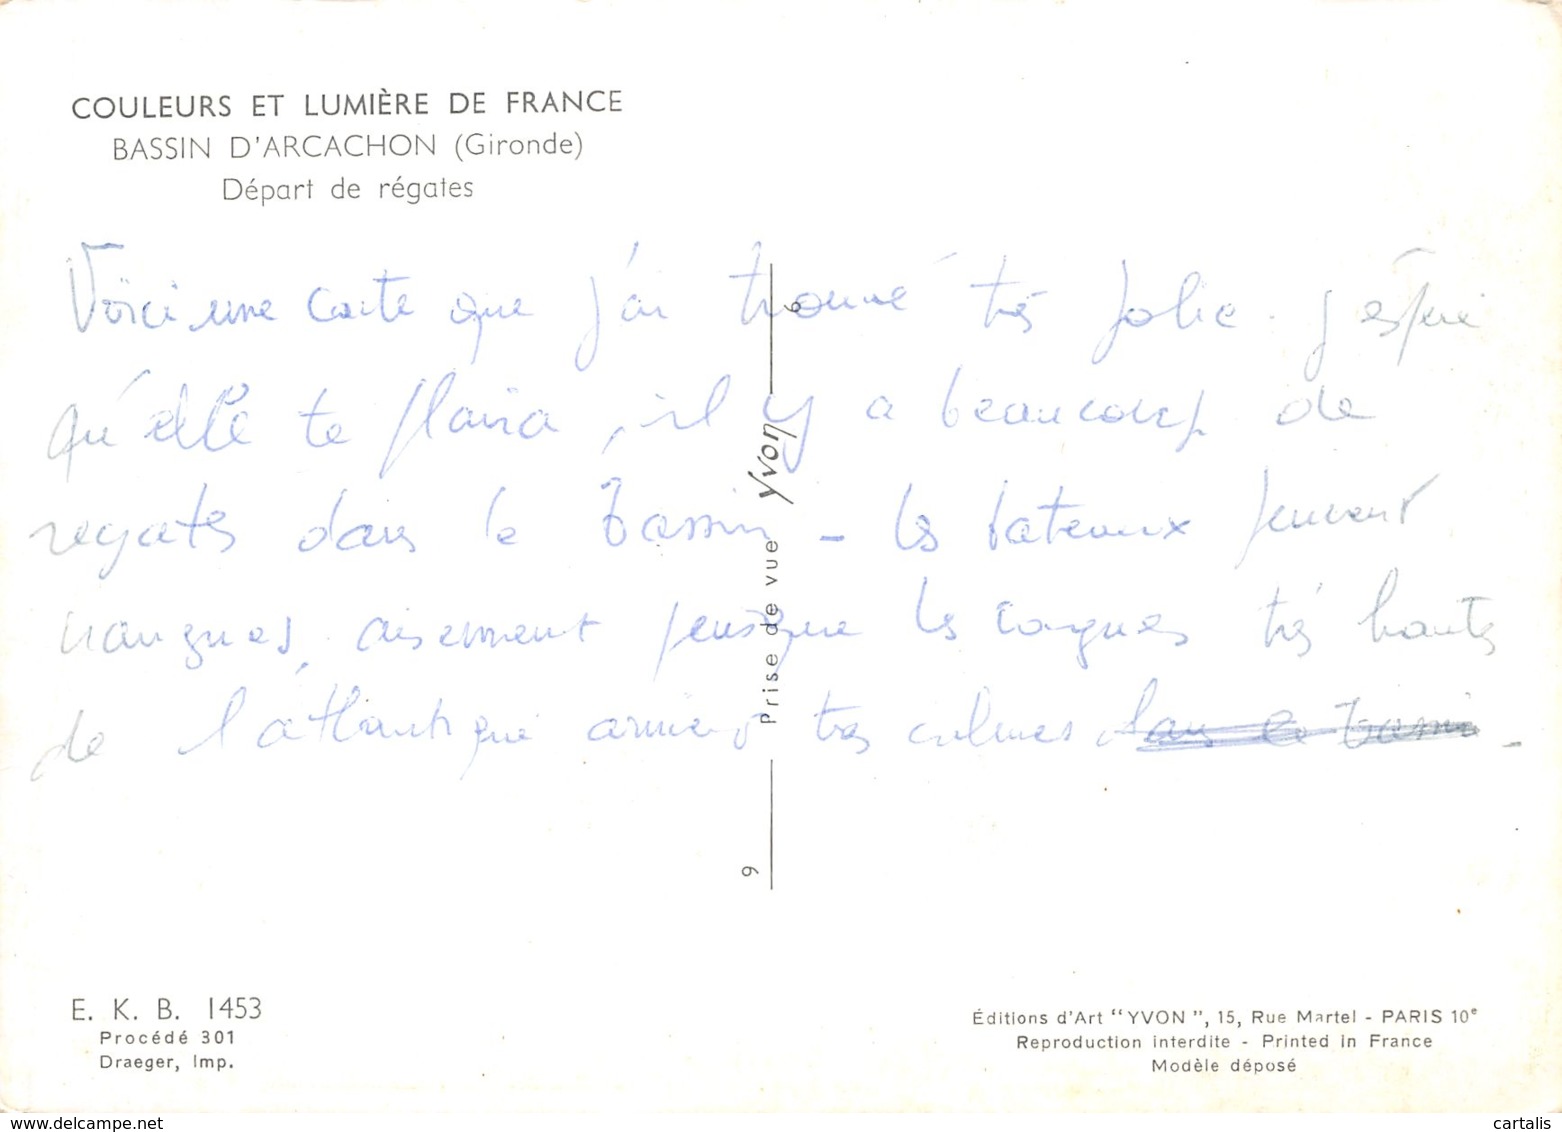 COULEURS ET LUMIÈRE DE FRANCE
BASSIN D'ARCACHON (Gironde)
Départ de régates
Voici une carte que j'ai trouvé très jolie. J'espère
qu'elle te plaira, il y a beaucoup de
regates dans le bassin - les bateaux peuvent
naviguer aisement puisque les vagues très hautes
de l'atlantique arrivent très calmes dans le bassin -
6
Yvon
Prise de vue
9
E. K. B. 1453
Procédé 301
Draeger, Imp.
Éditions d'Art "YVON", 15, Rue Martel - PARIS 10e
Reproduction interdite - Printed in France
Modèle déposé
https://www.delcampe.net
cartalis